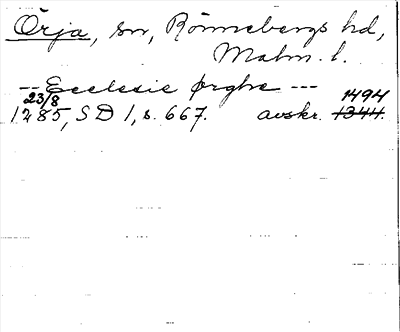 Örja, sn, Rönnebergs hd,
Malm. l.
-- Ecclesie ørghe ---
23/8 1494
1285, SD 1, s. 667. avskr. 1344.